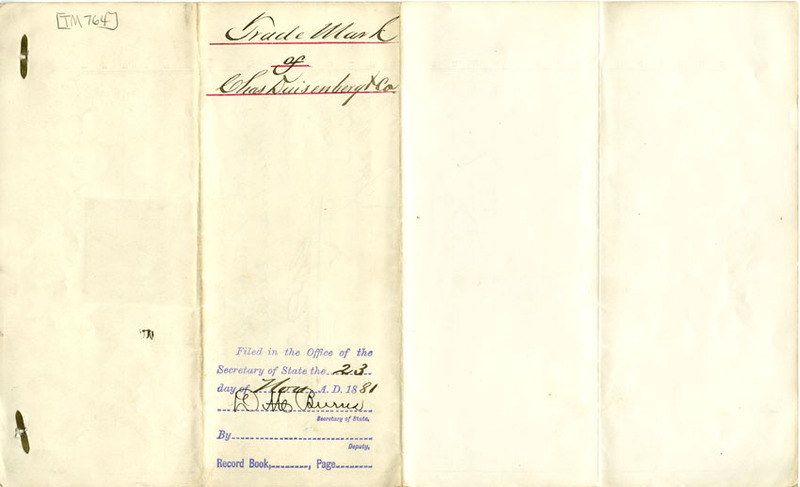 [TM 764]
Trade Mark
of
Chas Duisenberg & Co
Filed in the Office of the
Secretary of State the 23
day of Nov A. D. 1881
D M Burns
Secretary of State.
By
Deputy.
Record Book, , Page